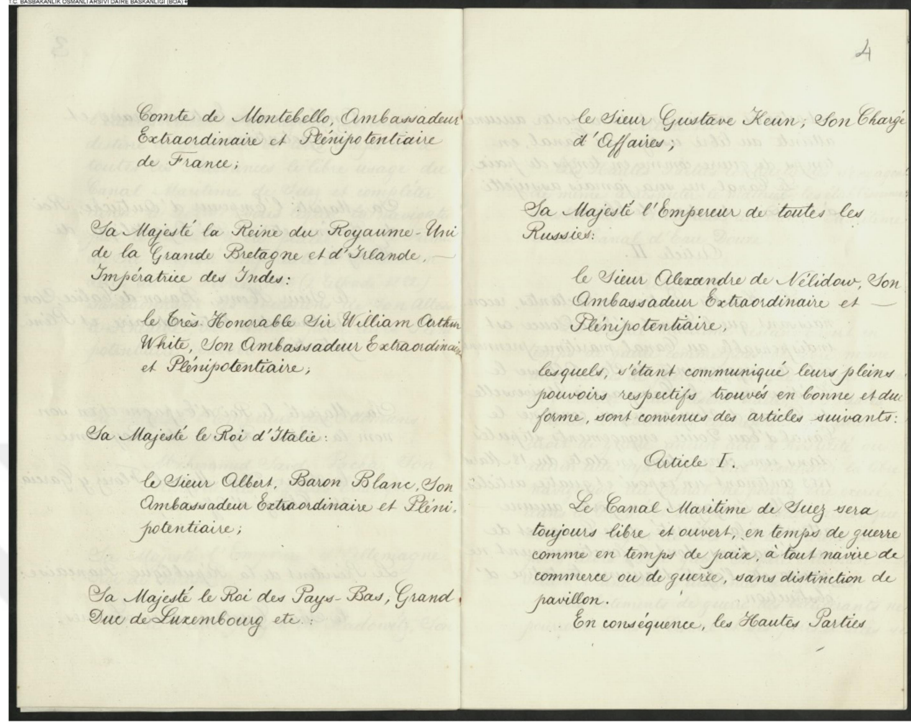 T.C. BAŞBAKANLIK OSMANLI ARŞİVİ DAİRE BAŞKANLIĞI (BOA)
Comte de Montebello, Ambassadeur
Extraordinaire et Plénipotentiaire
de France;
Sa Majesté la Reine du Royaume-Uni
de la Grande Bretagne et d'Irlande,
Impératrice des Indes:
le Très Honorable Sir William Arthur
White, Son Ambassadeur Extraordinaire
et Plénipotentiaire;
Sa Majesté le Roi d'Italie:
le Sieur Albert, Baron Blanc, Son
Ambassadeur Extraordinaire et Pléni-
potentiaire;
Sa Majesté le Roi des Pays-Bas, Grand
Duc de Luxembourg etc:
3
4
le Sieur Gustave Keun, Son Chargé
d'Affaires;
Sa Majesté l'Empereur de toutes les
Russies:
le Sieur Alexandre de Nélidow, Son
Ambassadeur Extraordinaire et
Plénipotentiaire,
lesquels, s'étant communiqué leurs pleins
pouvoirs respectifs trouvés en bonne et due
forme, sont convenus des articles suivants:
Article I.
Le Canal Maritime de Suez sera
toujours libre et ouvert, en temps de guerre
comme en temps de paix, à tout navire de
commerce ou de guerre, sans distinction de
pavillon.
En conséquence, les Hautes Parties